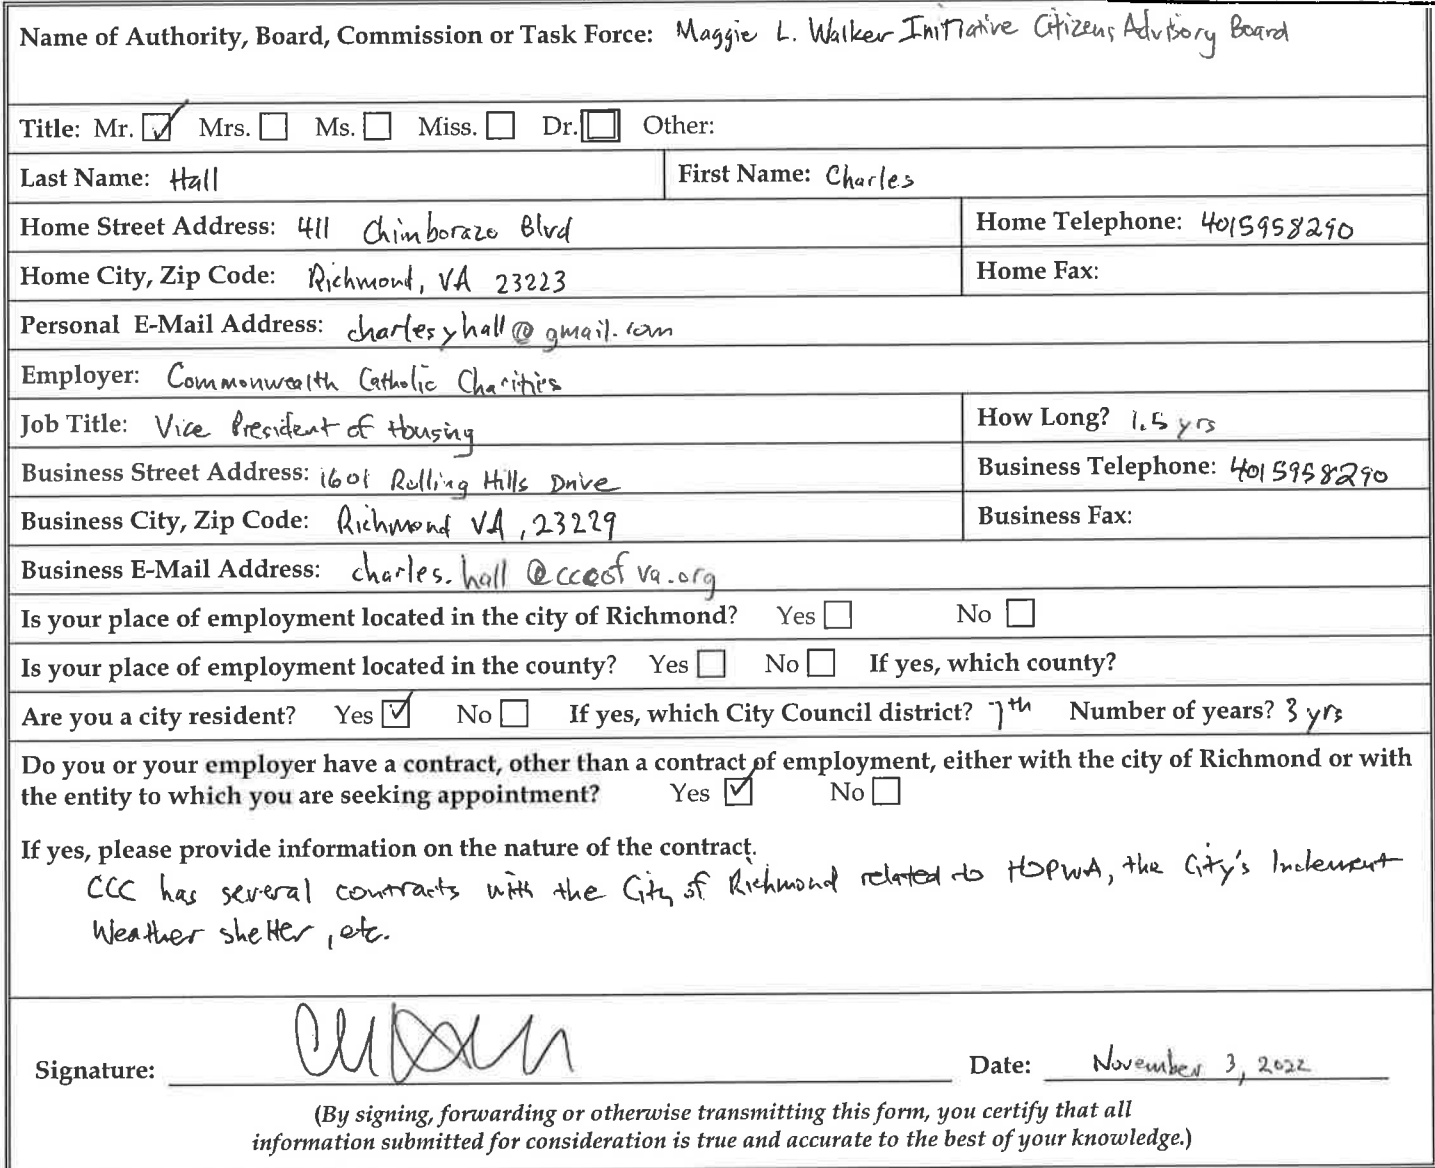 Name of Authority, Board, Commission or Task Force: Maggie L. Walker Initiative Citizens Advisory Board
Title: Mr. ☑ Mrs. ☐ Ms. ☐ Miss. ☐ Dr. ☐ Other:
Last Name: Hall First Name: Charles
Home Street Address: 411 Chimborazo Blvd Home Telephone: 4015958290
Home City, Zip Code: Richmond, VA 23223 Home Fax:
Personal E-Mail Address: charlesyhall@gmail.com
Employer: Commonwealth Catholic Charities
Job Title: Vice President of Housing How Long? 1.5 yrs
Business Street Address: 1601 Rolling Hills Drive Business Telephone: 4015958290
Business City, Zip Code: Richmond VA, 23229 Business Fax:
Business E-Mail Address: charles.hall@cccofva.org
Is your place of employment located in the city of Richmond? Yes ☐ No ☐
Is your place of employment located in the county? Yes ☐ No ☐ If yes, which county?
Are you a city resident? Yes ☑ No ☐ If yes, which City Council district? 7th Number of years? 3 yrs
Do you or your employer have a contract, other than a contract of employment, either with the city of Richmond or with
the entity to which you are seeking appointment? Yes ☑ No ☐
If yes, please provide information on the nature of the contract.
CCC has several contracts with the City of Richmond related to HOPWA, the City's Inclement
Weather shelter, etc.
Signature: Date: November 3, 2022
(By signing, forwarding or otherwise transmitting this form, you certify that all
information submitted for consideration is true and accurate to the best of your knowledge.)